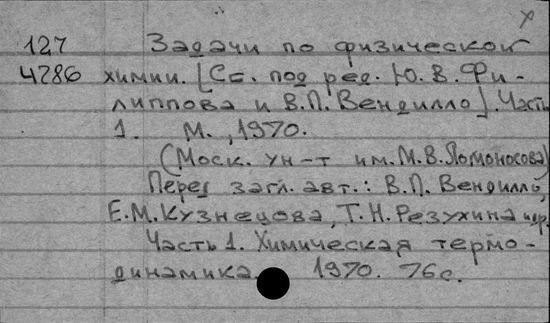 127 Задачи по физической
4286 химии. [Сб. под ред. Ю. В. Фи-
липпова и В. П. Вендилло]. Часть
1. М., 1970.
(Моск. ун-т им. М. В. Ломоносова)
Перед загл. авт.: В. П. Вендилло,
Е. М. Кузнецова, Т. Н. Резухина и др.
Часть 1. Химическая термо-
динамика. 1970. 76 с.